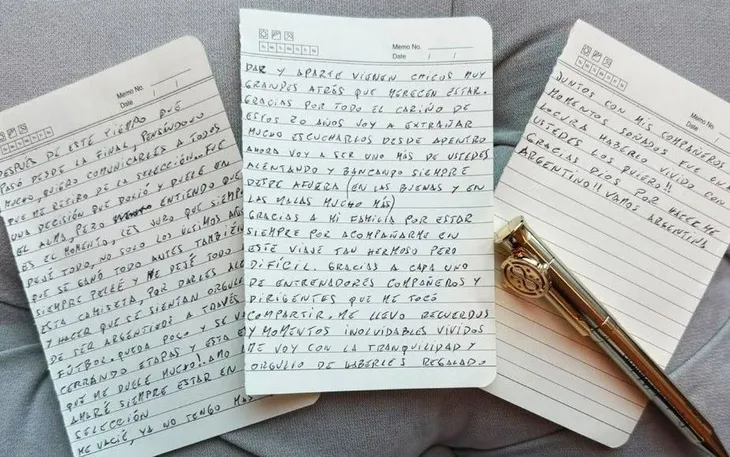 Memo No.
Date / /
DESPUÉS DE ESTE TIEMPO QUE
PASÓ DESDE LA FINAL, PENSÁNDOLO
MUCHO, QUIERO COMUNICARLES A TODOS
QUE ME RETIRO DE LA SELECCIÓN. FUE
UNA DECISIÓN QUE DOLIÓ Y DUELE EN
EL ALMA, PERO ENTIENDO QUE
ES EL MOMENTO, LES JURO QUE SIEMPRE
DEJÉ TODO, NO SOLO LOS ÚLTIMOS AÑOS
QUE SE GANÓ TODO ANTES TAMBIÉN
SIEMPRE PELEÉ Y ME DEJÉ TODO
ESTA CAMISETA, POR DARLES
Y HACER QUE SE SIENTAN
DE SER ARGENTINOS A TRAVÉS
FÚTBOL. QUEDA POCO Y SE
CERRANDO ETAPAS Y ESTA
QUE ME DUELE MUCHO! AMO
AMARÉ SIEMPRE ESTAR EN
SELECCIÓN
ME VACIÉ, YA NO TENGO
Memo No.
Date / /
DAR Y APARTE VIENEN CHICOS MUY
GRANDES ATRÁS QUE MERECEN ESTAR.
GRACIAS POR TODO EL CARIÑO DE
ESTOS 20 AÑOS VOY A EXTRAÑAR
MUCHO ESCUCHARLOS DESDE ADENTRO
AHORA VOY A SER UNO MÁS DE USTEDES
ALENTANDO Y BANCANDO SIEMPRE
DESDE AFUERA (EN LAS BUENAS Y EN
LAS MALAS MUCHO MÁS)
GRACIAS A MI FAMILIA POR ESTAR
SIEMPRE POR ACOMPAÑARME EN
ESTE VIAJE TAN HERMOSO PERO
DIFÍCIL. GRACIAS A CADA UNO
DE ENTRENADORES COMPAÑEROS Y
DIRIGENTES QUE ME TOCÓ
COMPARTIR. ME LLEVO RECUERDOS
Y MOMENTOS INOLVIDABLES VIVIDOS
ME VOY CON LA TRANQUILIDAD Y
ORGULLO DE HABERLES REGALADO
Memo No.
Date / /
JUNTOS CON MIS COMPAÑEROS
MOMENTOS SOÑADOS FUE UNA
LOCURA HABERLO VIVIDO CON
USTEDES LOS QUIERO!!
GRACIAS DIOS POR HACERME
ARGENTINO!! VAMOS ARGENTINA